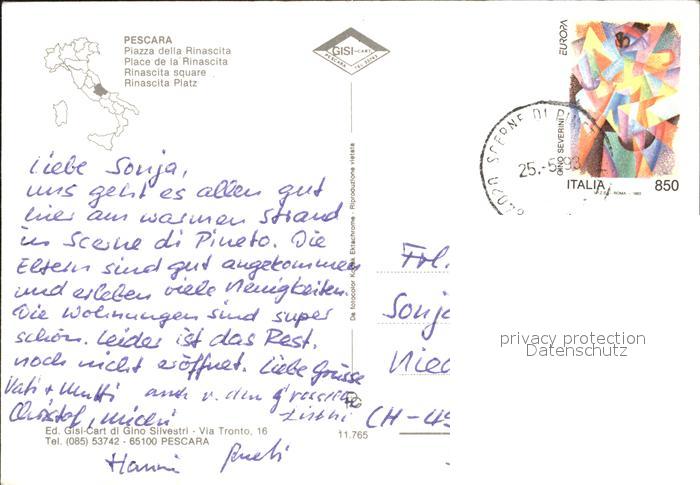 PESCARA
Piazza della Rinascita
Place de la Rinascita
Rinascita square
Rinascita Platz
GISI-CART
PESCARA TEL 53742
EUROPA
GINO SEVERINI
ITALIA 850
I.P.Z.S. - ROMA - 1993
64020 SCERNE DI PI
25.-5.93
De fotocolor Kodak Ektachrome - Riproduzione vietata
Liebe Sonja,
uns geht es allen gut
hier am warmen Strand
in Scerne di Pineto. Die
Eltern sind gut angekommen
und erleben viele Neuigkeiten.
Die Wohnungen sind super
schön. Leider ist das Rest.
noch nicht eröffnet. Liebe Grüsse
Vati + Mutti auch v. den
Christof,
Hanni Ruedi
Frl.
Sonja
Nied
CH-45
privacy protection
Datenschutz
Ed. Gisi-Cart di Gino Silvestri - Via Tronto, 16
Tel. (085) 53742 - 65100 PESCARA
11.765